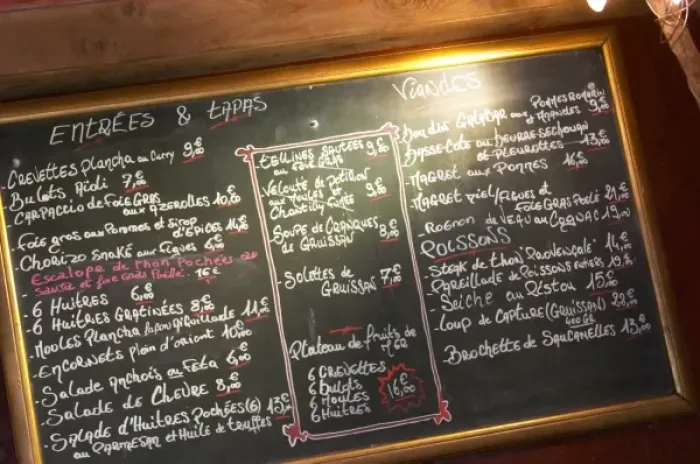 ENTRÉES & TAPAS
- CREVETTES plancha au Curry 9,00€
- Bulots Aïoli 7,00€
- CARPACCIO de Foie GRAS
aux AZEROLLES 10,00€
- Foie gras aux Pommes et Sirop
d'EPICES 14,00€
- Chorizo Snaké aux Figues 6,00€
Escalope de Thon Pochées au
Santé et foie gras Poêlé. 16€
- 6 Huitres 6,00€
- 6 Huitres GRATINÉES 8,00€
- Moules Plancha façon Aiguillade 11,00€
- Encornets plein d'orient 10,00€
- Salade Anchois au Feta 6,00€
- Salade de Chèvre 8,00€
- Salade d'Huitres Pochées (6) 13,00€
au PARMESAN et Huile de truffes
tellines sautées 9,80€
au Foie GRAS
Velouté de Potiron
aux Moules et 9,80€
Chantilly Fumée
Soupe de Cranques 8,00€
de GRUISSAN
Solettes de 7,00€
GRUISSAN
Plateau de fruits de
MER
6 CREVETTES
6 Bulots
6 Moules
6 Huitres
16,00€
VIANDES
- Boudin GALABAR aux POMMES ROMARIN
et AMANDES 9,00€
- BASSE-Côte au beurre SECHOUAN
et PLEUROTTES 13,00€
- MAGRET aux POMMES 16,00€
- MAGRET Miel/Figues et
FOIE GRAS Poêlé 21,00€
- Rognon de VEAU au COGNAC 19,00€
POISSONS
- Steak de Thon Provençale 14,00€
- Pareillade de Poissons entiers 19,00€
- Seiche au Pistou 15,00€
- Loup de CAPTURE (GRUISSAN) 22,00€
400 GR
- Brochette de Saucanelles 13,00€